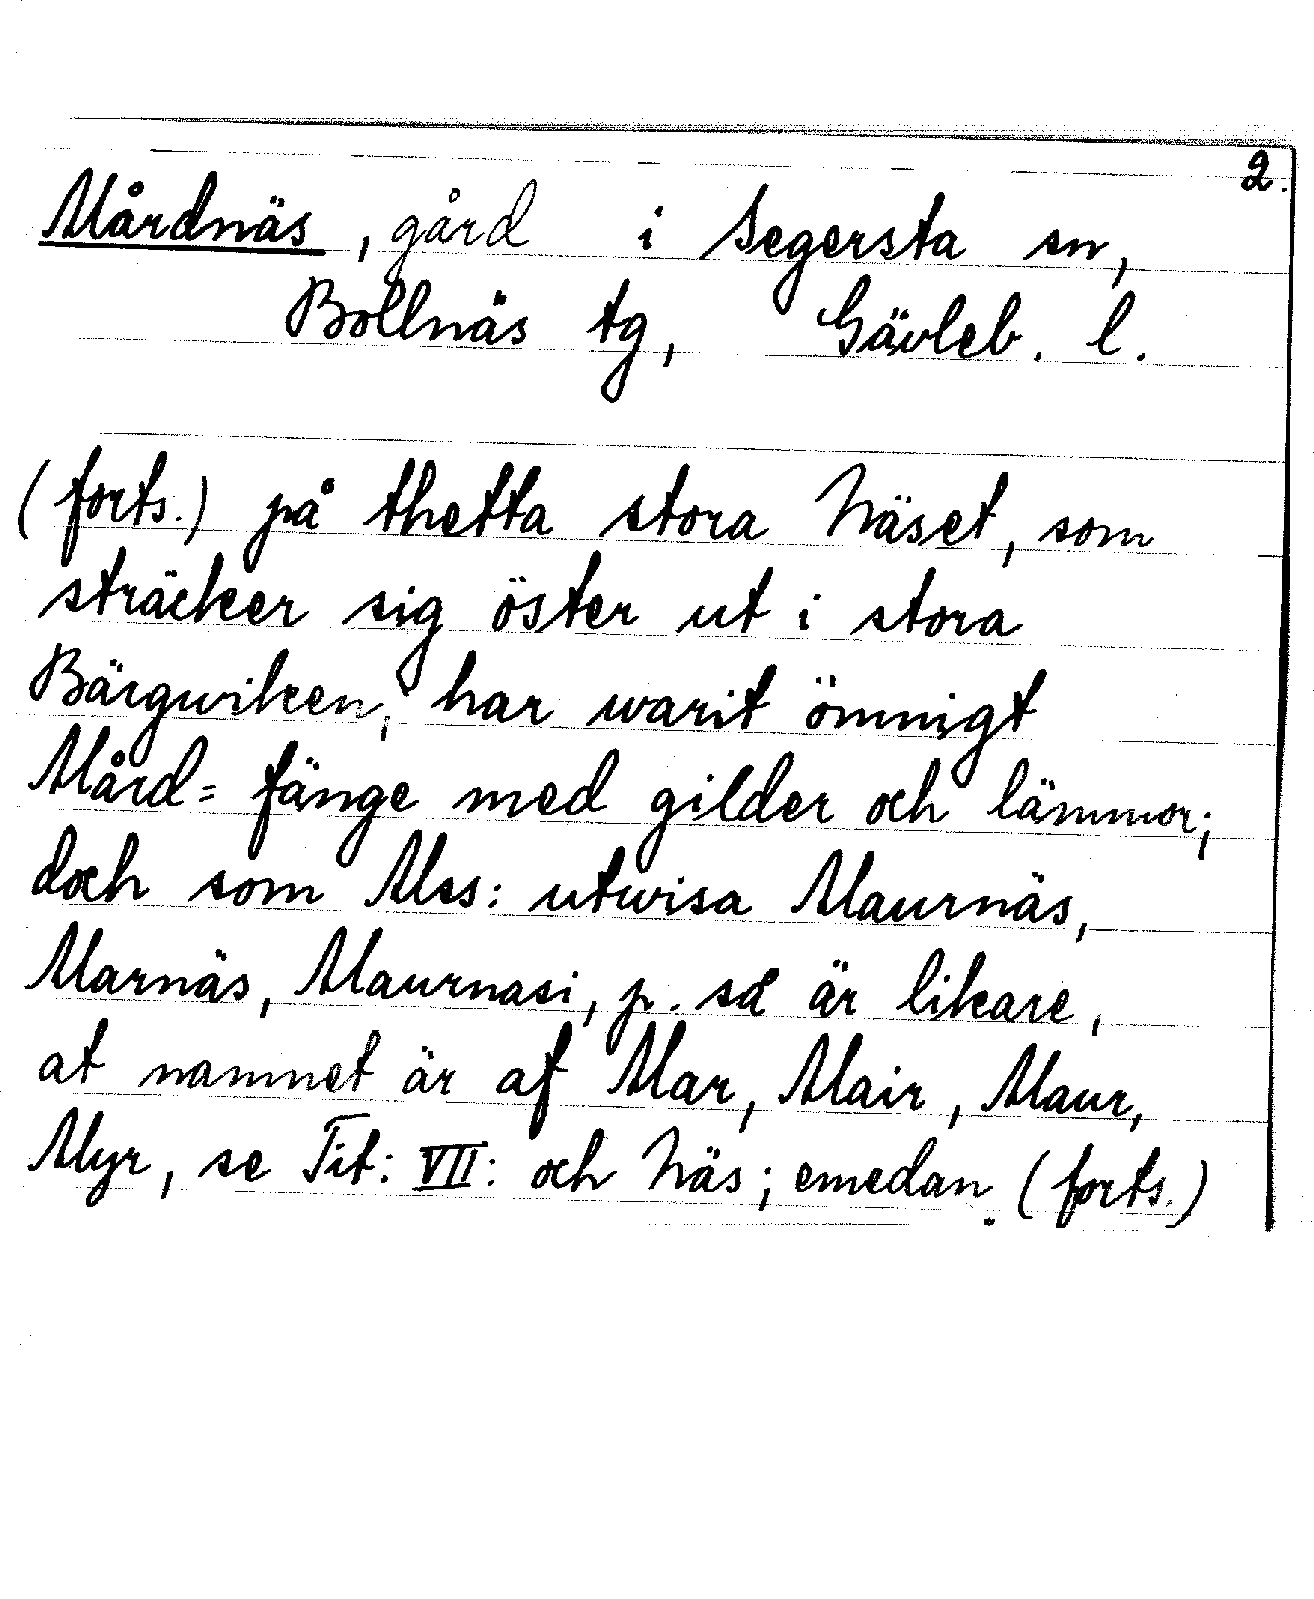 2.
Mårdnäs, gård i Segersta sn,
Bollnäs tg, Gävleb. l.
(forts.) på thetta stora Näset, som
sträcker sig öster ut i stora
Bärgwiken, har warit ömnigt
Mård= fänge med gilder och lämmor;
doch som Mss: utwisa Maurnäs,
Marnäs, Maurnasi, p. så är likare,
at namnet är af Mar, Mair, Maur,
Myr, se Tit: VII: och Näs; emedan (forts.)